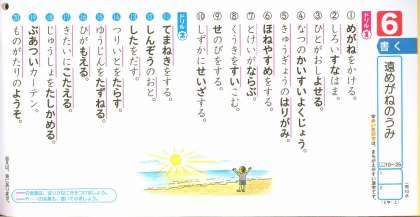 6
書く
遠めがねのうみ
ドリル1
① めがねをかける。
② しろいすなはま。
③ ひとがおしよせる。
④ なつのかいすいよくじょう。
⑤ きゅうぎょうのはりがみ。
⑥ ほねやすめをする。
⑦ とけいがならぶ。
⑧ くうきをすいこむ。
⑨ せのびをする。
⑩ しずかにせいざする。
ドリル2
⑪ てまねきをする。
⑫ しんぞうのおと。
⑬ したをだす。
⑭ つりいとをたらす。
⑮ ゆうじんをたずねる。
⑯ ひがもえる。
⑰ きたいにこたえる。
⑱ じゅうしょをたしかめる。
⑲ ぶあついカーテン。
⑳ ものがたりのようそ。